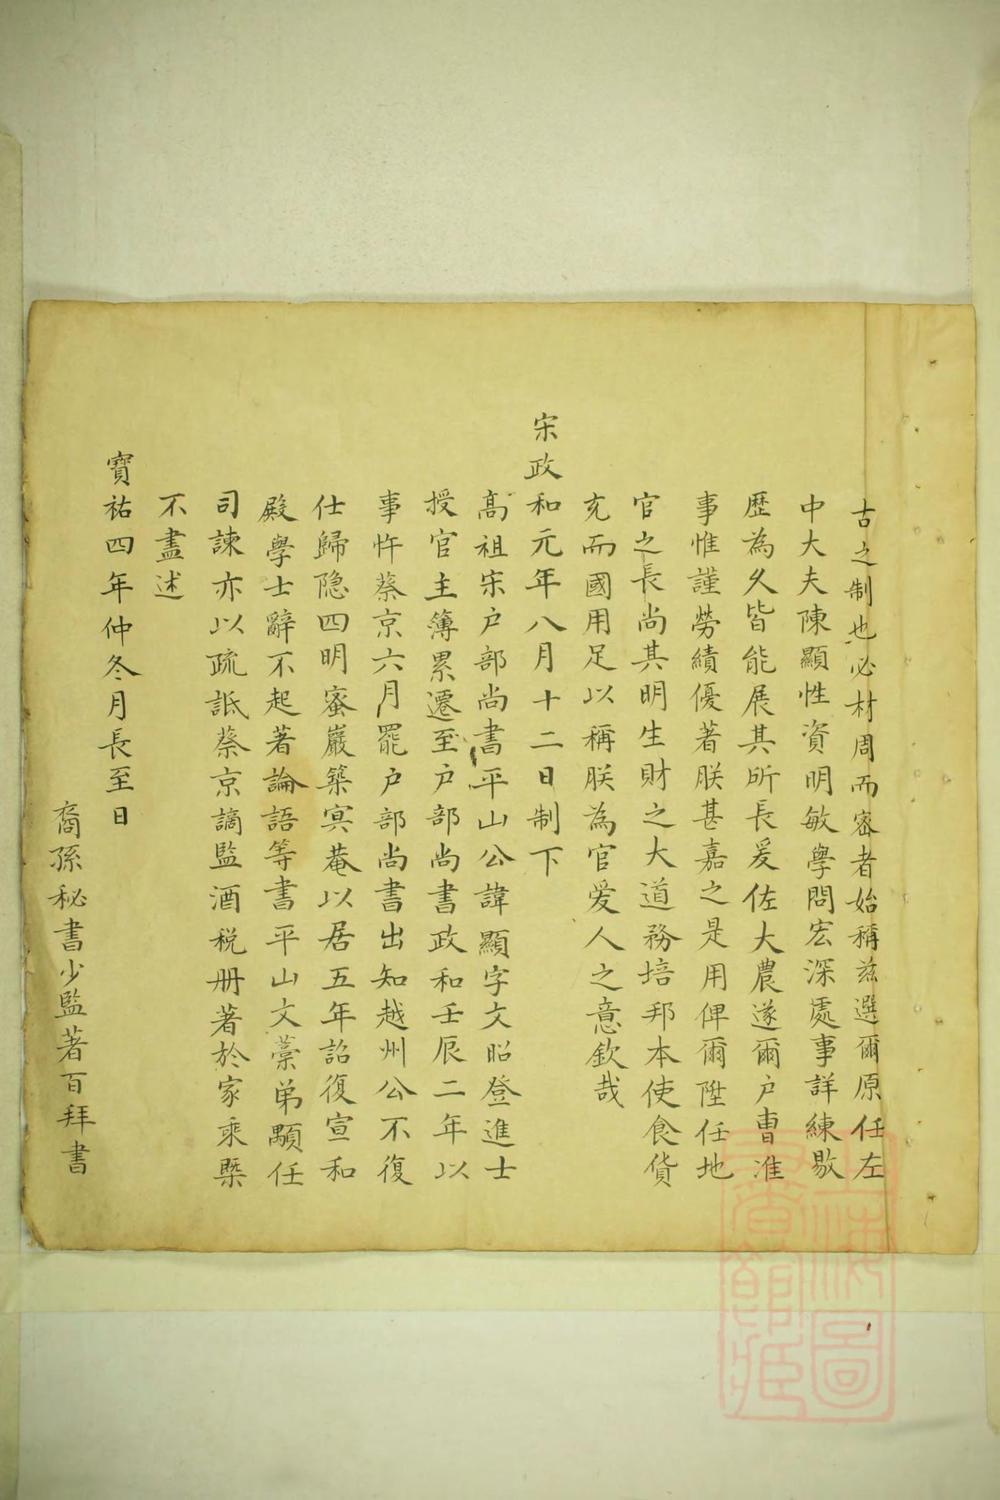 古之制也必材周而密者始稱茲選爾原任左
中大夫陳顯性資明敏學問宏深處事詳練敭
歷為久皆能展其所長爰佐大農遂爾户曹淮
事惟謹勞績優著朕甚嘉之是用俾爾陞任地
官之長尚其明生財之大道務培邦本使食貨
充而國用足以稱朕為官爱人之意欽哉
宋政和元年八月十二日制下
高祖宋户部尚書平山公諱顯字文昭登進士
授官主簿累遷至户部尚書政和壬辰二年以
事忤蔡京六月罷户部尚書出知越州公不復
仕歸隐四明蜜巖築寞菴以居五年詔復宣和
殿學士辭不起著論語等書平山文藁弟顒任
司諫亦以疏詆蔡京謫監酒税册著於家乘槩
不盡述
寶祐四年仲冬月長至日
裔孫秘書少監著百拜書
上海圖書館藏